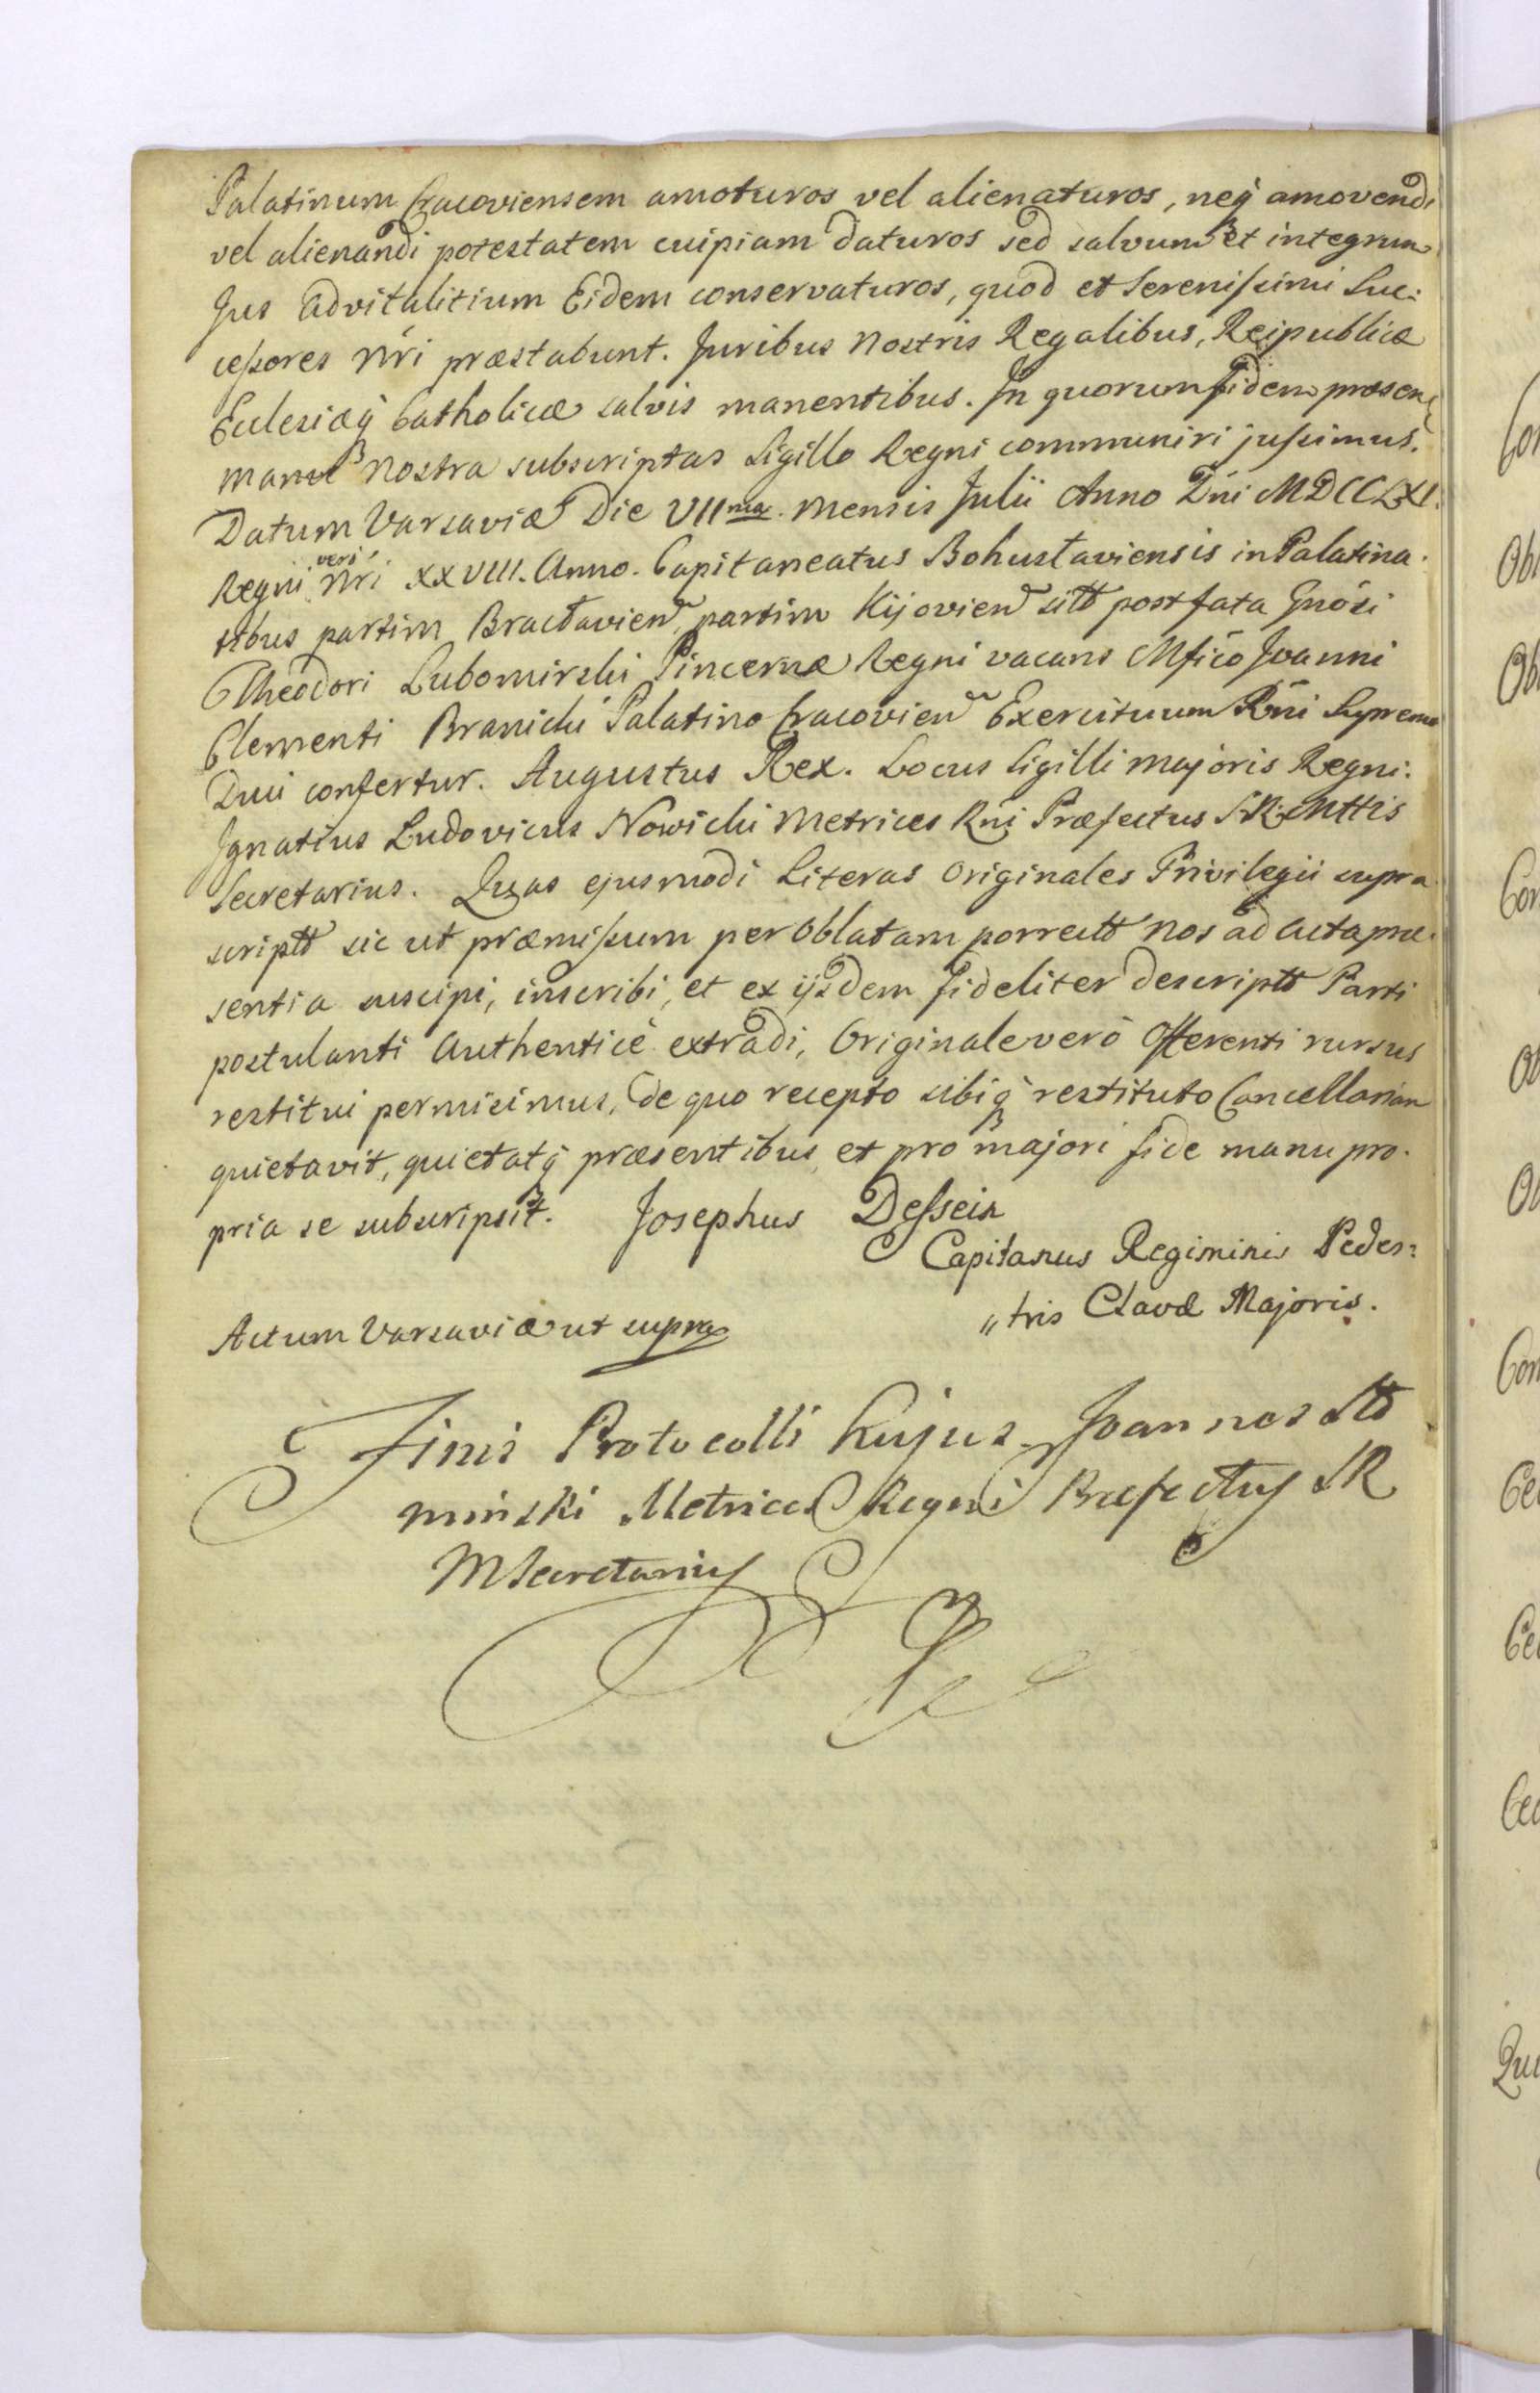 Palatinum Cracoviensem amoturos vel alienaturos, neq̃ amovendi
vel alienandi potestatem cuipiam daturos sed salvum et integrum
Jus advitalitium Eidem conservaturos, quod et Serenissimi Suc:
cessores Nr̃i præstabunt. Juribus Nostris Regalibus, Reipublicæ
Eclesiæq̃ Catholicæ salvis manentibus. In quorum fidem præsen̨
manu Nostra subscriptas Sigillo Regni communiri jussimus.
Datum Varsaviæ Die VIIma. Mensis Julii Anno Dni MDCCLXI.
Regni veri Nri XXVIII. Anno. Capitaneatus Bohuslaviensis in Palatina.
tibus partim Bracłavien̄ partim Kijovien̄ sitt̃ post fata Gnõsi
Theodori Lubomirski Pincernæ Regni vacans Mfico Joanni
Clementi Branicki Palatino Cracovien̄ Exercituum Rñi Supremo
Duci confertur. Augustus Rex. Locus Sigilli Majoris Regni.
Ignatius Ludovicus Nowicki Metrices Rni Præfectus SRMttis
Secretarius. Quas ejusmodi Literas Originales Privilegii supra
scriptt̃ sic ut præmissum per Oblatam porrectt̃ Nos ad Acta præ.
sentia suscipi, inscribi, et ex ijsdem fideliter descriptt̃ Parti
postulanti Authenticè extradi, Originale verò Offerenti rursus
restitui permisimus, de quo recepto sibiq̃ restituto Cancellariam
quietavit, quietatq̃ præsentibus, et pro majori fide manu pro.
pria se subscripsit. Josephus Dessein
Capitanus Regiminis Pedes:
„tris Clavæ Majoris.
Actum Varsaviæ ut supra
Finis Protocolli hujus Joannes
minski Metrices Regni Præfectus SR
MSecretarius